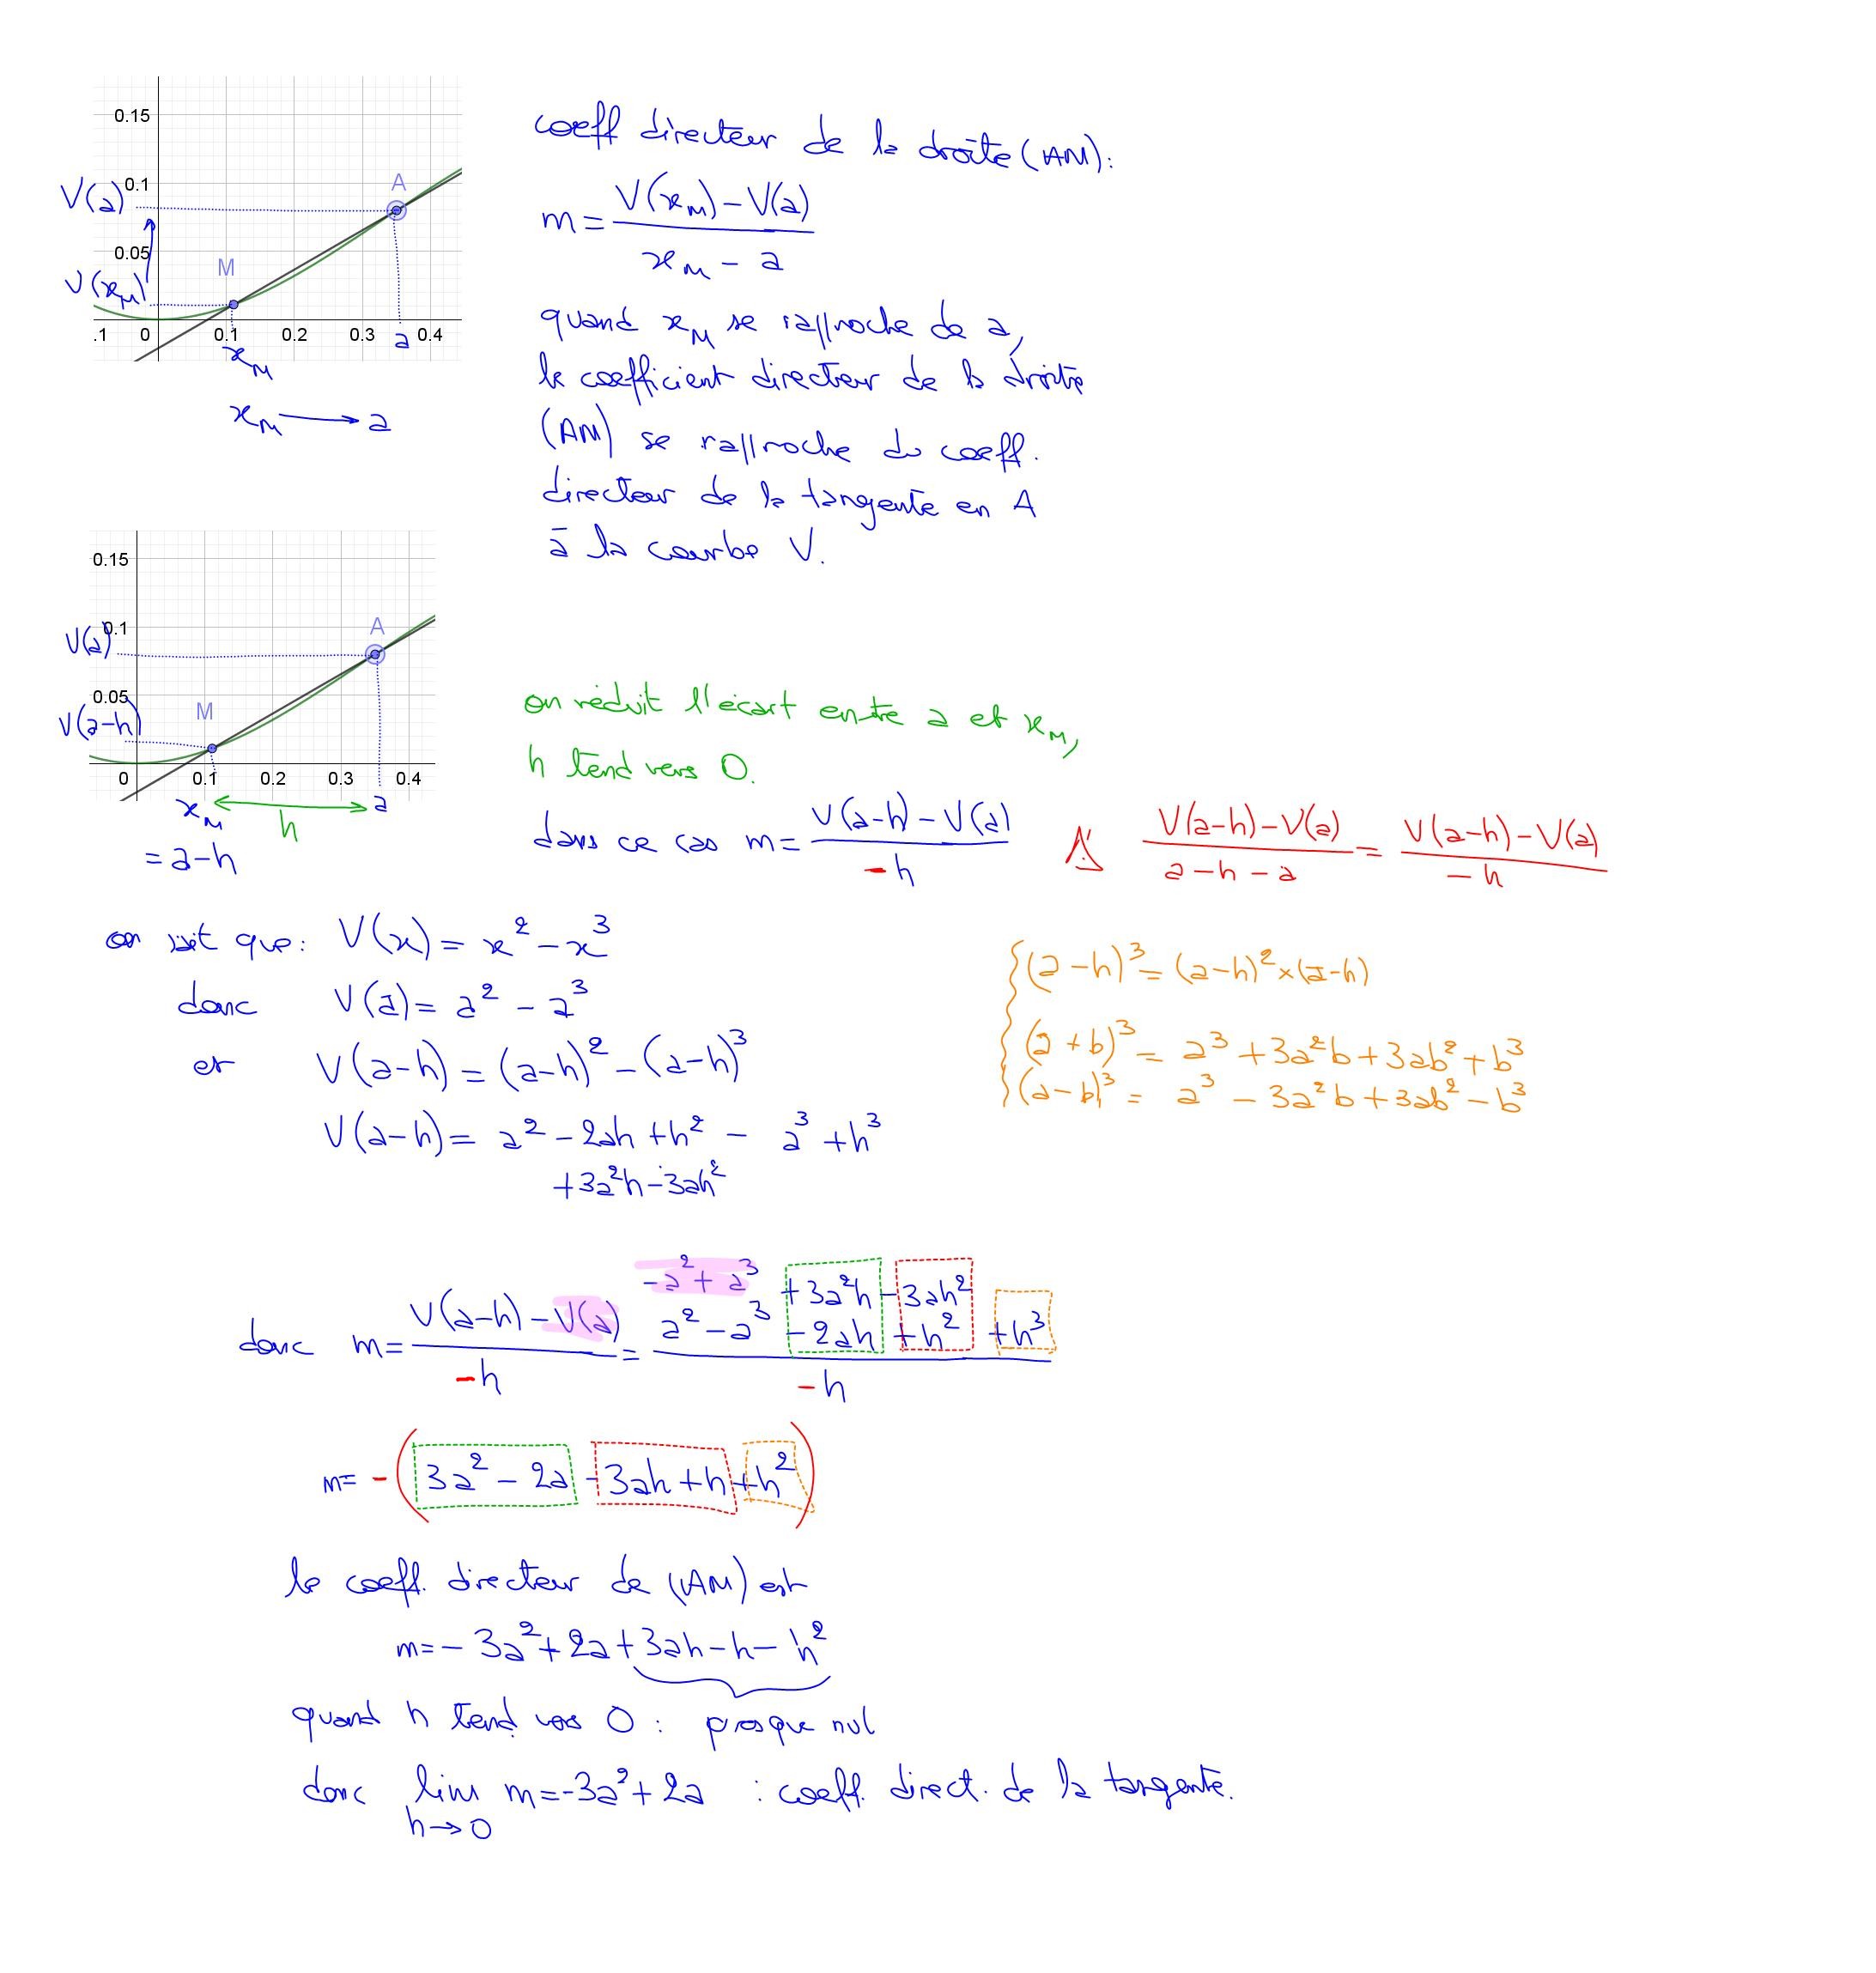 0.15
0.1
0.05
.1 0 0.1 0.2 0.3 0.4
V(a)
V(x_M)
A
M
x_M
a
x_M → a
coeff directeur de la droite (AM):
m = (V(x_M) - V(a)) / (x_M - a)
quand x_M se rapproche de a,
le coefficient directeur de la droite
(AM) se rapproche du coeff.
directeur de la tangente en A
à la courbe V.
0.15
0.1
0.05
0 0.1 0.2 0.3 0.4
V(a)
V(a-h)
A
M
x_M
h
a
= a-h
on réduit l'écart entre a et x_M,
h tend vers 0.
dans ce cas m = (V(a-h) - V(a)) / -h
⚠ (V(a-h) - V(a)) / (a-h-a) = (V(a-h) - V(a)) / -h
on sait que: V(x) = x² - x³
donc V(a) = a² - a³
et V(a-h) = (a-h)² - (a-h)³
V(a-h) = a² - 2ah + h² - a³ + h³
+3a²h - 3ah²
(a-h)³ = (a-h)² × (a-h)
(a+b)³ = a³ + 3a²b + 3ab² + b³
(a-b)³ = a³ - 3a²b + 3ab² - b³
donc m = (V(a-h) - V(a)) / -h = (-a² + a³ + 3a²h - 3ah² a² - a³ - 2ah + h² + h³) / -h
m = -(3a² - 2a - 3ah + h + h²)
le coeff. directeur de (AM) est
m = -3a² + 2a + 3ah - h - h²
quand h tend vers 0 : presque nul
donc lim m = -3a² + 2a : coeff. direct. de la tangente.
h → 0